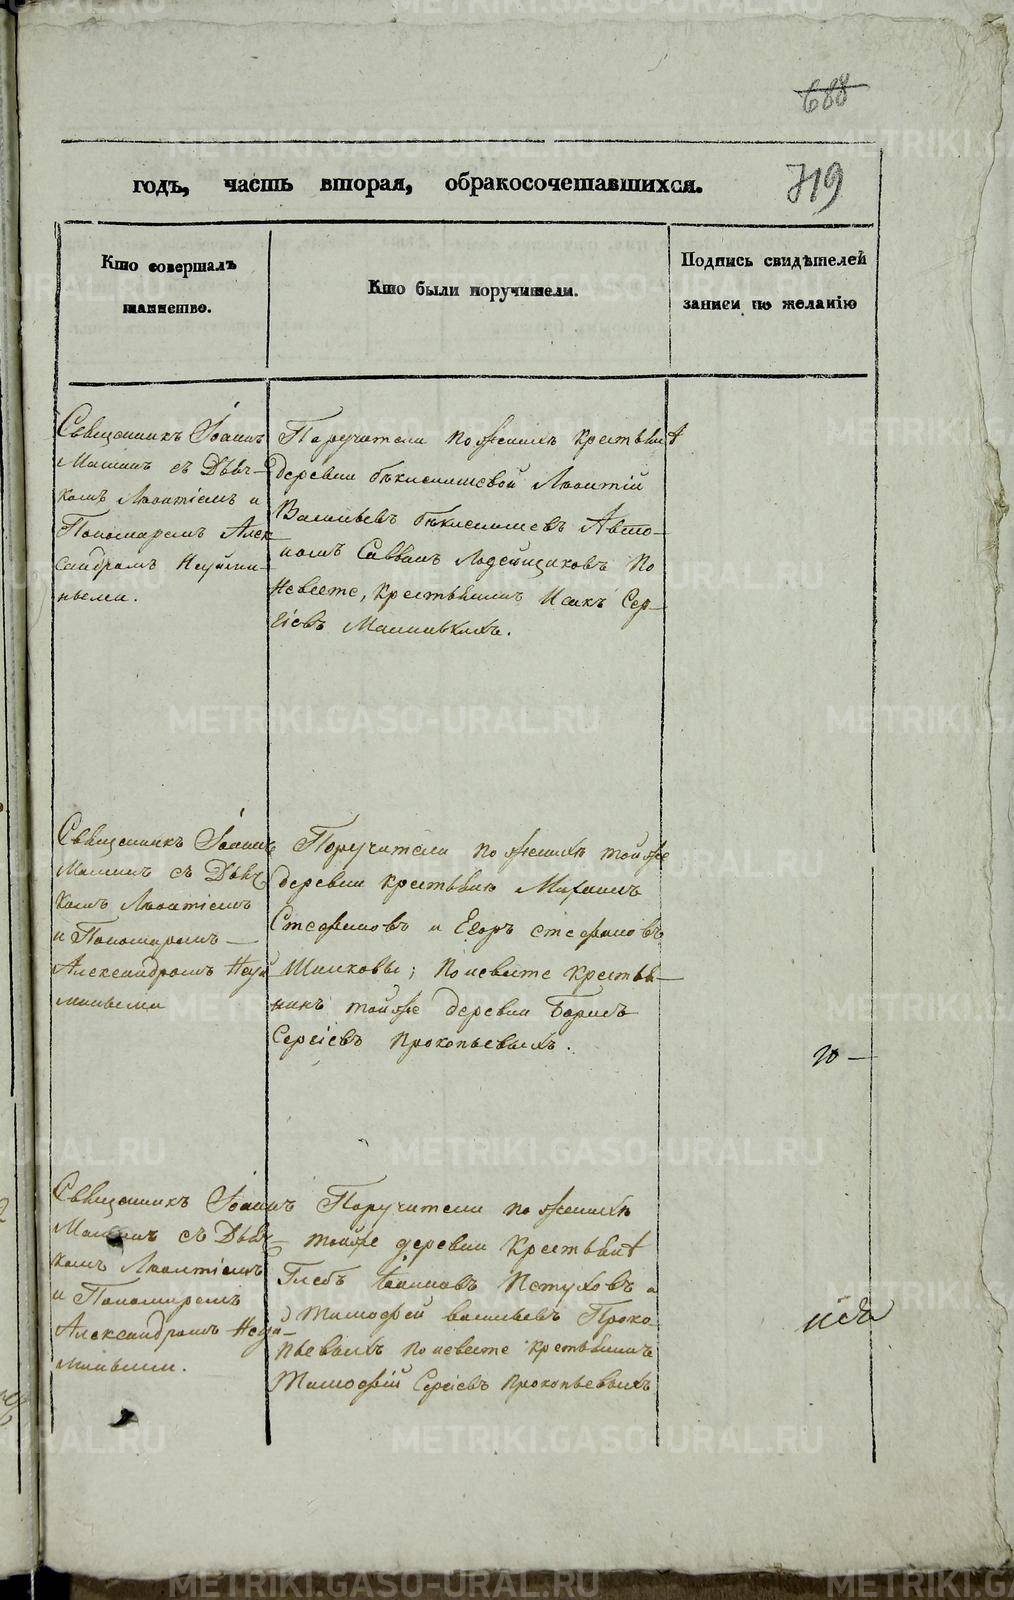 688
719
годъ, часть вторая, обракосочетавшихся.
Кто совершалъ таинство.
Кто были поручители.
Подпись свидѣтелей записи по желанію
Священникъ Іоаннъ
Малинъ съ Дьяч-
комъ Леонтіемъ и
Пономаремъ Алек
сандромъ Неуйми-
ныеми.
Поручители по женихѣ крестьянѣ
деревни Бѣкленищевой Леонтій
Васильевъ Бѣкленищевъ Авто-
номъ Саввинъ Лодейщиковъ по
невесте, крестьянинъ Исакъ Сер-
гіевъ Малиновкихъ.
Священникъ Іоаннъ
Малинъ съ Дьяч
комъ Леонтіемъ
и Пономаремъ
Александромъ Неуй
миныеми
Поручители по женихѣ той же
деревни крестьяне Михаилъ
Стефановъ и Егоръ Стефановъ
Шиповы; по невесте крестья-
нинъ той же деревни Борисъ
Сергіевъ Прокопьевыхъ.
Священникъ Іоаннъ
Малинъ съ Дьяч-
комъ Леонтіемъ
и Пономаремъ
Александромъ Неуй-
миныеми.
Поручители по женихѣ
той же деревни крестьянѣ
Глебъ Іоанновъ Петуховъ и
Тимофей Васильевъ Проко
пьевыхъ по невесте крестьянинъ
Тимофій Сергіевъ Прокопьевыхъ
METRIKI.GASO-URAL.RU